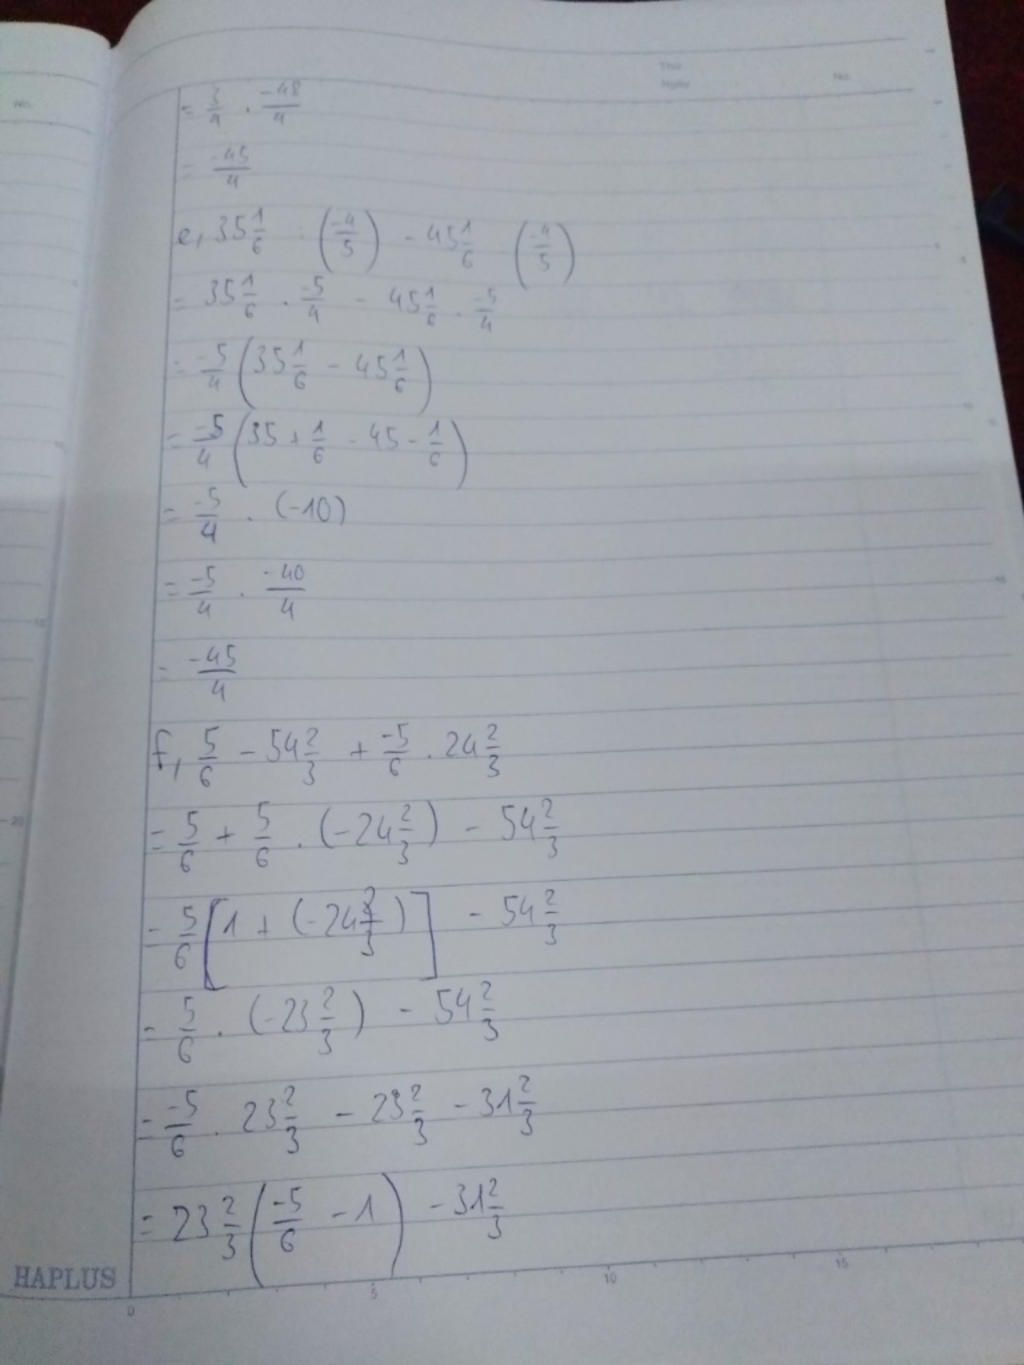 Thứ
Ngày
No.
No.
= 3/4 . -48/4
= -45/4
e, 35 1/6 : (-4/5) - 45 1/6 (-4/5)
= 35 1/6 . -5/4 - 45 1/6 . -5/4
= -5/4 (35 1/6 - 45 1/6)
= -5/4 (35 + 1/6 - 45 - 1/6)
= -5/4 . (-10)
= -5/4 . -40/4
= -45/4
f, 5/6 - 54 2/3 + -5/6 . 24 2/3
= 5/6 + 5/6 . (-24 2/3) - 54 2/3
= 5/6 [1 + (-24 2/3)] - 54 2/3
= 5/6 . (-23 2/3) - 54 2/3
= -5/6 . 23 2/3 - 23 2/3 - 31 2/3
= 23 2/3 (-5/6 - 1) - 31 2/3
HAPLUS
0 5 10 15